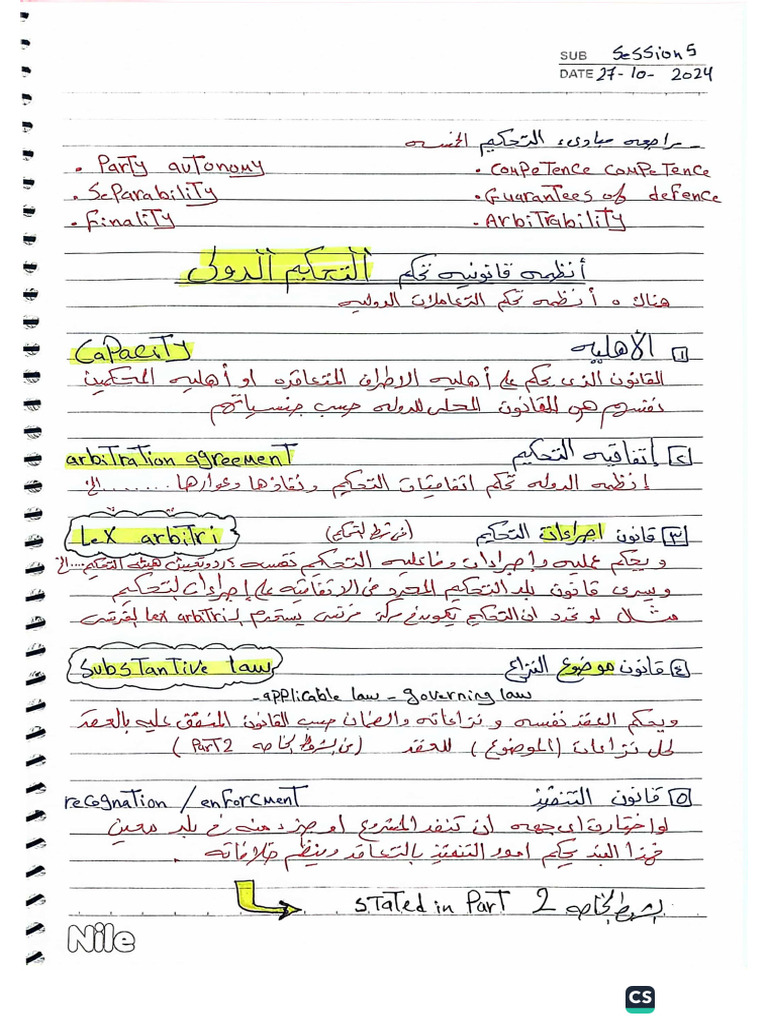 SUB Session 5
DATE 27-10-2024
- مراجعه مبادىء التحكيم الخمسه
• Party autonomy • competence competence
• Separability • Guarantees of defence
• Finality • Arbitrability
أنظمه قانونيه تحكم التحكيم الدولى
هناك 5 أنظمه تحكم التعاملات الدوليه
١ الأهليه Capacity
القانون الذى يحكم على أهليه الاطراف المتعاقده او أهليه المحكمين
نفسهم هو القانون المحلى للدوله حسب جنسياتهم
٢ إتفاقيه التحكيم arbitration agreement
إنظمه الدوله تحكم اتفاقيات التحكيم ونفاذها وعوارها ......... الخ
٣ قانون اجراءات التحكيم (فى شرط التحكيم) Lex arbitri
ويحكم عمليه وإجراءات وفاعليه التحكيم نفسه ردود تعيين هيئه التحكيم .... الخ
ويسرى قانون بلد التحكيم المحدد فى الاتفاقيه على إجراءات التحكيم
مثال لو تحدد ان التحكيم يكون فى يستخدم الـ lex arbitri الفرنسى
٤ قانون موضوع النزاع Substantive law
- applicable law - governing law
ويحكم العقد نفسه و نزاعاته والضمان حسب القانون المتفق عليه بالعقد
لحل نزاعات (الموضوع) للعقد (من الشروط الخاصه Part 2)
٥ قانون التنفيذ recognation / enforcment
لو اختارت اى جهه ان تنفذ المشروع او جزء منه فى بلد معين
فهذا البند يحكم امور التنفيذ بالتعاقد وينظم خلافاته .
stated in Part 2 بالشروط الخاصه
Nile
CS